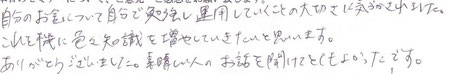 自分のお金について自分で勉強し運用していくことの大切さに気づかされました。
これを機に色々知識を増やしていきたいと思います。
ありがとうございました。素晴しい人のお話を聞けてとてもよかったです。